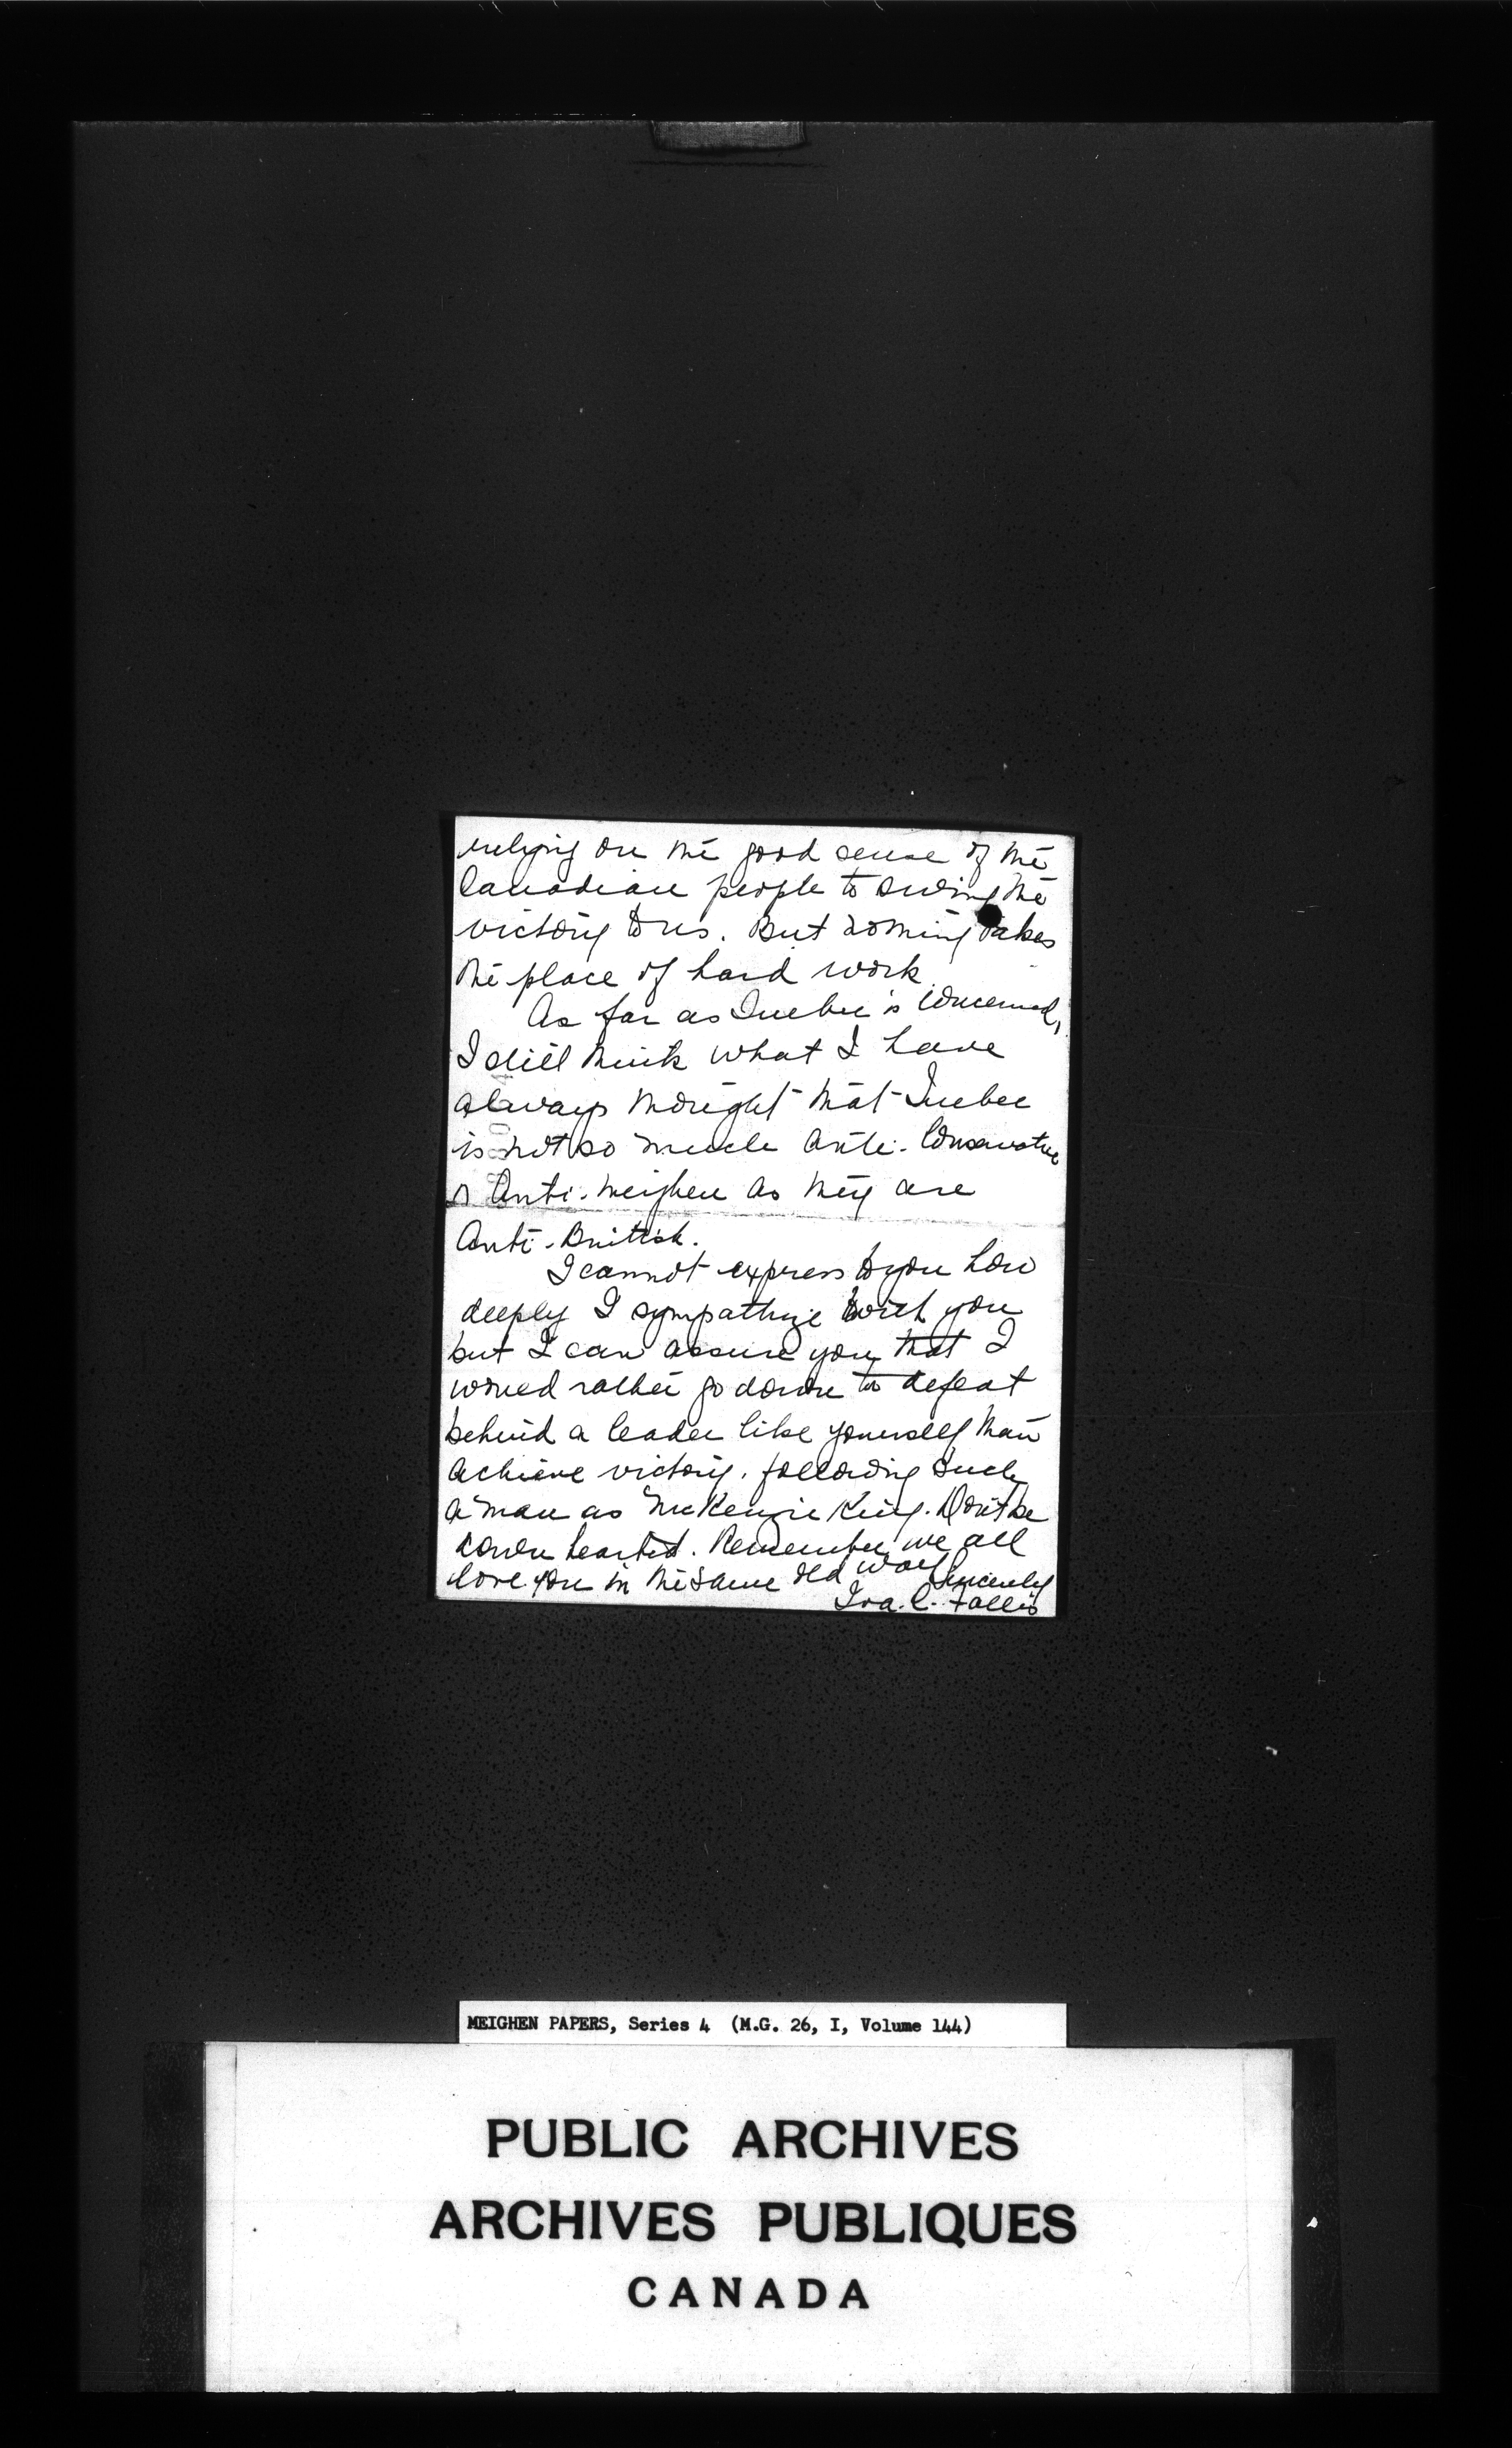 relying on the good sense of the
Canadian people to swing the
victory to us. But nothing takes
the place of hard work.
As far as Quebec is concerned,
I still think what I have
always thought that Quebec
is not so much Anti-Conservative
or Anti-Meighen as they are
Anti-British.
I cannot express to you how
deeply I sympathize with you
but I can assure you that I
would rather go down to defeat
behind a leader like yourself than
achieve victory, following such
a man as McKenzie King. Don't be
down hearted. Remember we all
love you in the same old way
Sincerely
Iva. C. Fallis
MEIGHEN PAPERS, Series 4 (M.G. 26, I, Volume 144)
PUBLIC ARCHIVES
ARCHIVES PUBLIQUES
CANADA